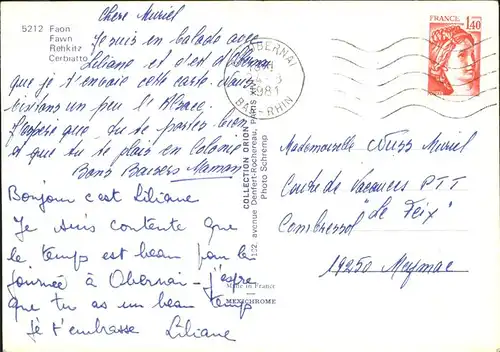 5212 Faon
Fawn
Rehkitz
Cerbiatto
Chère Muriel
Je suis en balade avec
Liliane et c'est d'Obernai
que je t'envoie cette carte. Nous
visitons un peu l'Alsace.
J'espère que tu te portes bien
et que tu te plais en Colonie
Bons Baisers Maman
Bonjour c'est Liliane
Je suis contente que
le temps est beau pour la
journée à Obernai - j'espère
que tu as un beau temps
Je t'embrasse Liliane
COLLECTION ORION
122, avenue Denfert-Rochereau, PARIS
Photo Schremp
Made in France
MEXICHROME
OBERNAI
1981
BAS-RHIN
FRANCE
1,40
Mademoiselle Nuss Muriel
Centre de Vacances PTT
"Le Teix"
Combressol
19250 Meymac